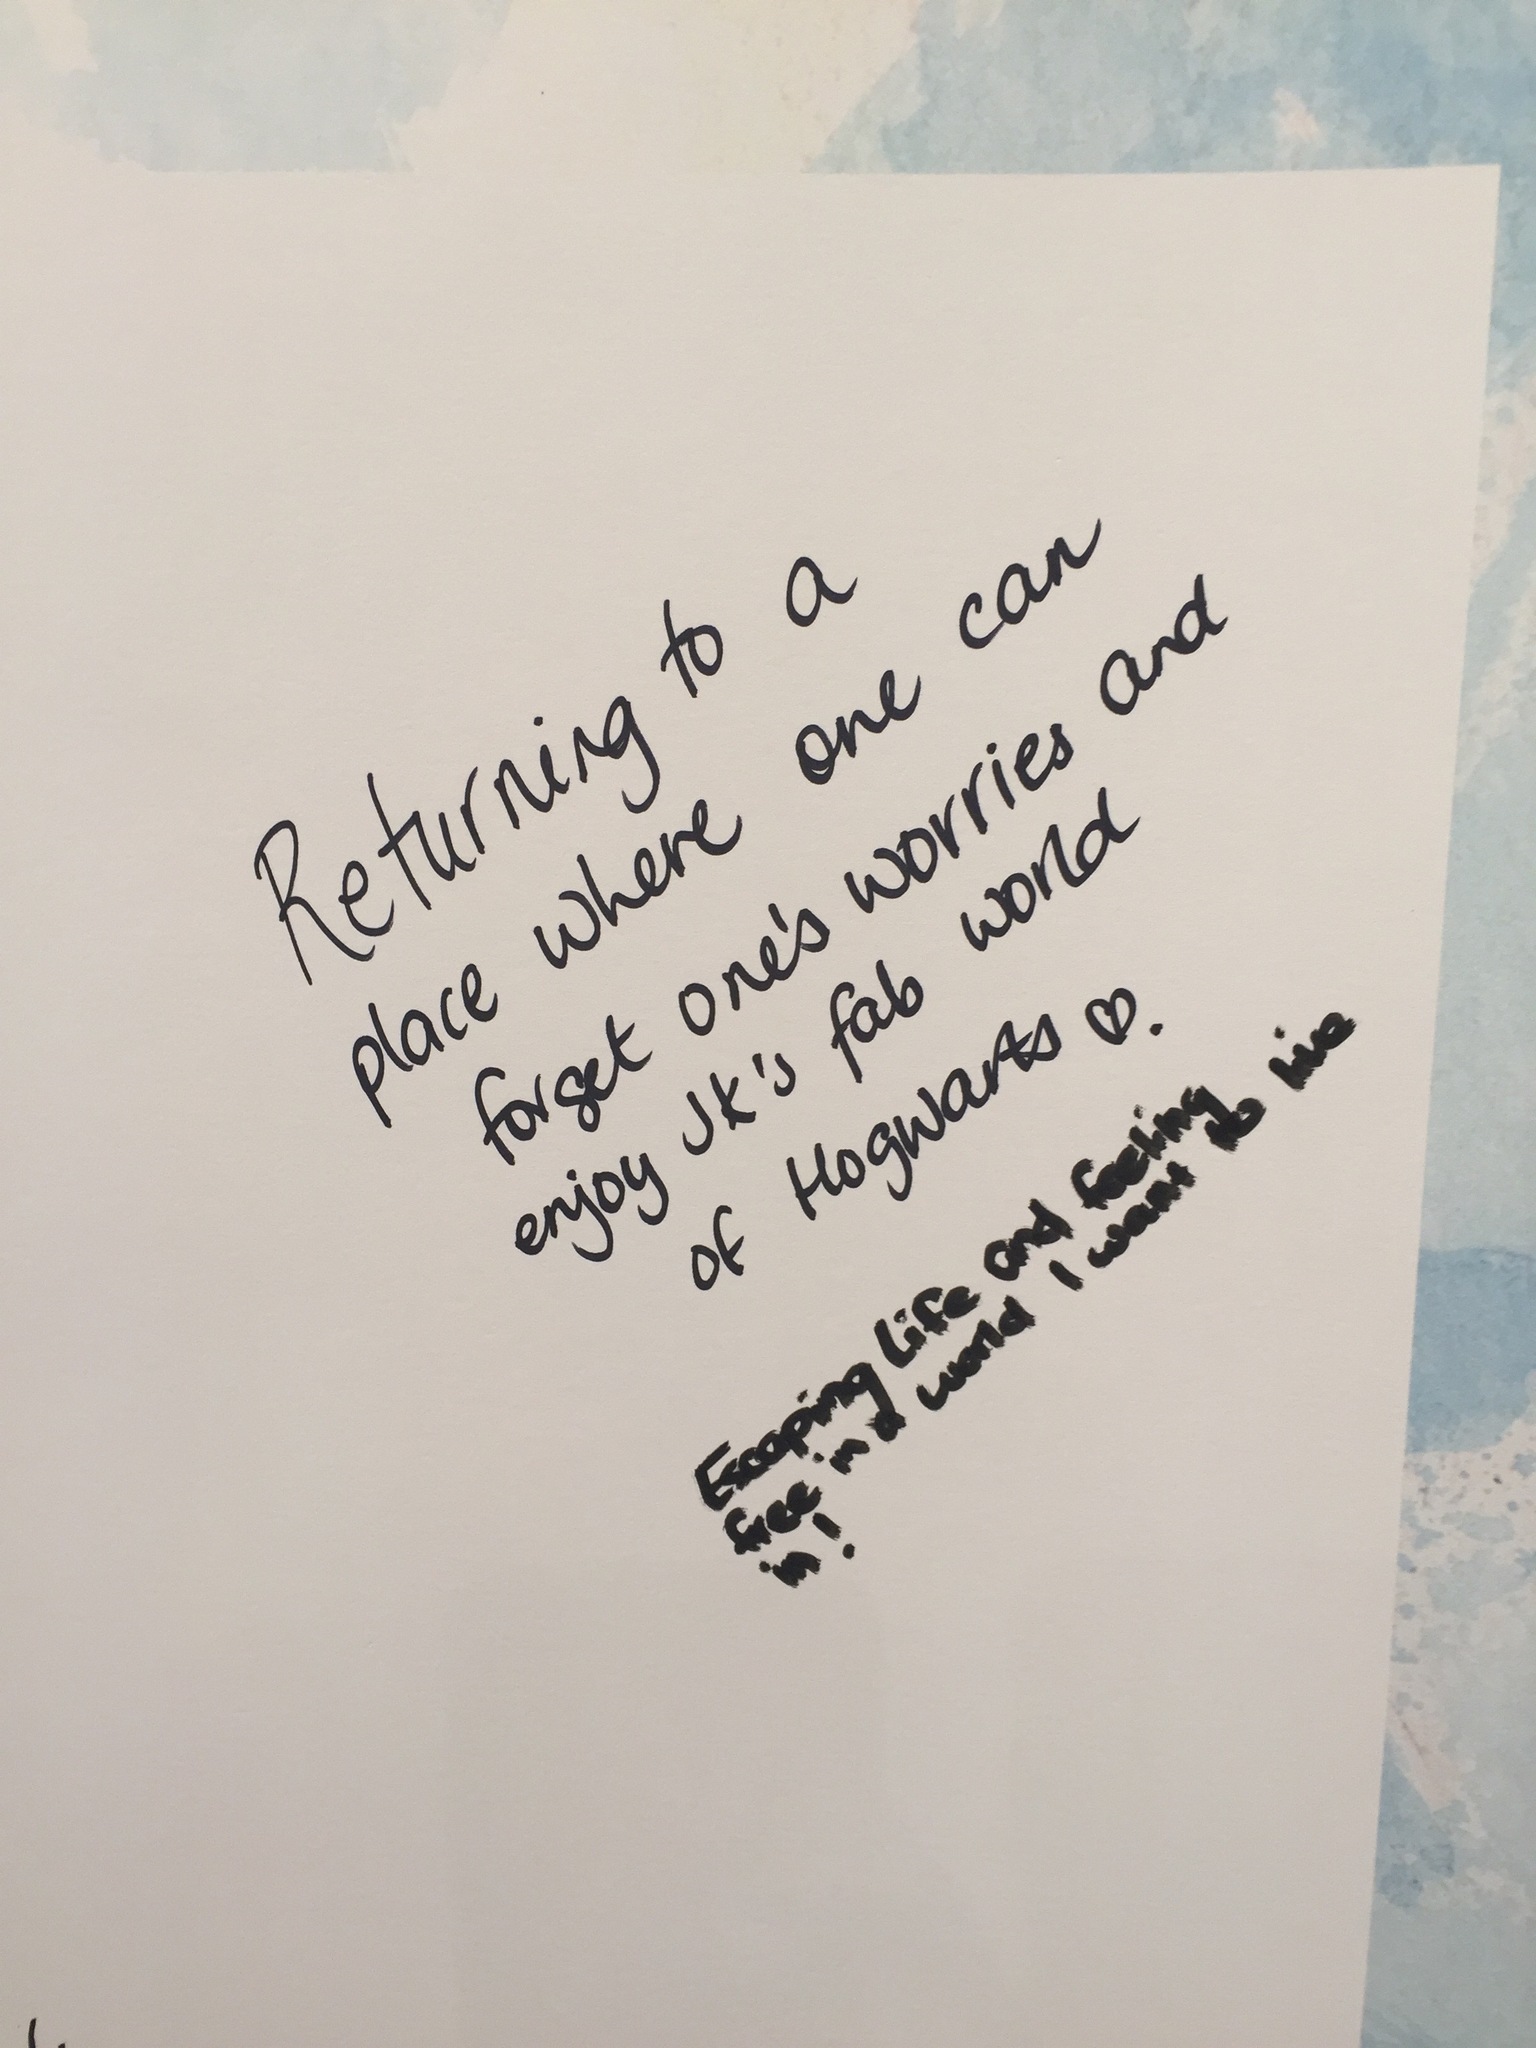 Returning to a
place where one can
forget one's worries and
enjoy JK's fab world
of Hogwarts ♡.
Escaping Life and feeling
free in a world I want to live
in!